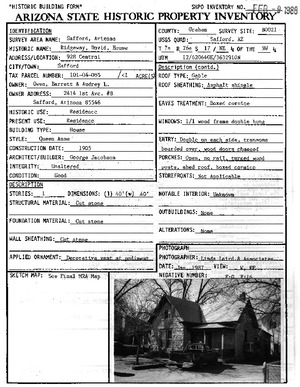 "HISTORIC BUILDING FORM"
SHPO INVENTORY NO.
FEB 1988
ARIZONA STATE HISTORIC PROPERTY INVENTORY
IDENTIFICATION
SURVEY AREA NAME: Safford, Arizona
HISTORIC NAME: Ridgeway, David, House
ADDRESS/LOCATION: 928 Central
CITY/TOWN: Safford
TAX PARCEL NUMBER: 101-04-085 /<1 ACRE(S)
OWNER: Owen, Barrett & Audrey L.
OWNER ADDRESS: 2414 1st Ave. #8
Safford, Arizona 85546
HISTORIC USE: Residence
PRESENT USE: Residence
BUILDING TYPE: House
STYLE: Queen Anne
CONSTRUCTION DATE: 1905
ARCHITECT/BUILDER: George Jacobson
INTEGRITY: Unaltered
CONDITION: Good
DESCRIPTION
STORIES: 1 DIMENSIONS: (l) 40'(w) 40'
STRUCTURAL MATERIAL: Cut stone
FOUNDATION MATERIAL: Cut stone
WALL SHEATHING: Cut stone
APPLIED ORNAMENT: Decorative
SKETCH MAP: See Final MRA Map
COUNTY: Graham SURVEY SITE:
USGS QUAD: Safford, AZ
T 7s R 26e S 17 / NE ¼ OF THE SW ¼
UTM
Description (contd.)
ROOF TYPE: Gable
ROOF SHEATHING: Asphalt shingle
EAVES TREATMENT: Boxed cornice
WINDOWS: 1/1 wood frame double hung
ENTRY: Double on each side, transoms
boarded over, wood doors
PORCHES: Open, no rail, turned wood
posts, shed roof, boxed cornice
STOREFRONTS: Not Applicable
NOTABLE INTERIOR: Unknown
OUTBUILDINGS: None
ALTERATIONS: None
PHOTOGRAPH
PHOTOGRAPHER: Linda Laird & Associates
DATE: Jan. 1987 VIEW:
NEGATIVE NUMBER: